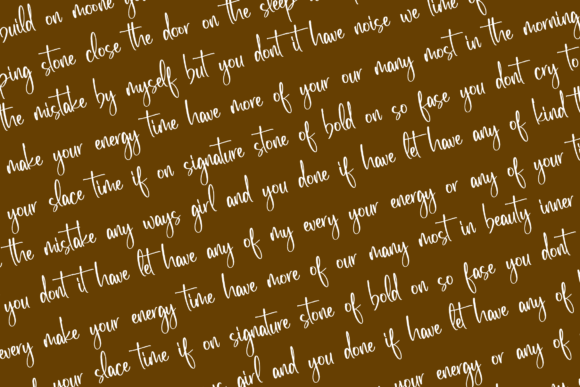 build on moone
ping stone close the door on the sleep
the mistake by myself but you dont it have noise we time of
make your energy time have more of your our many most in the morning
your slace time if on signature stone of bold on so fase you dont cry to
the mistake any ways girl and you done if have let have any of kind
you dont it have let have any of my every your energy or any of your
every make your energy time have more of our many most in beauty inner
your slace time if on signature stone of bold on so fase you dont
girl and you done if have let have any of
your energy or any of